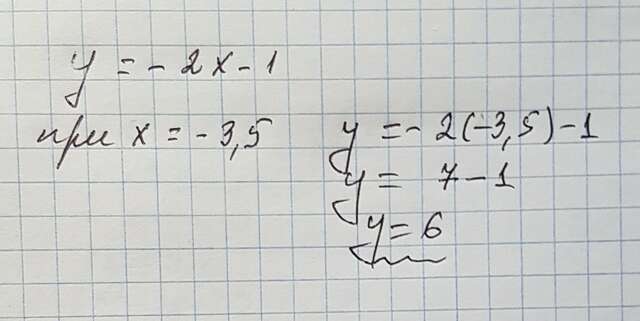 y = - 2x - 1
при x = - 3,5
y = - 2(-3,5) - 1
y = 7 - 1
y = 6